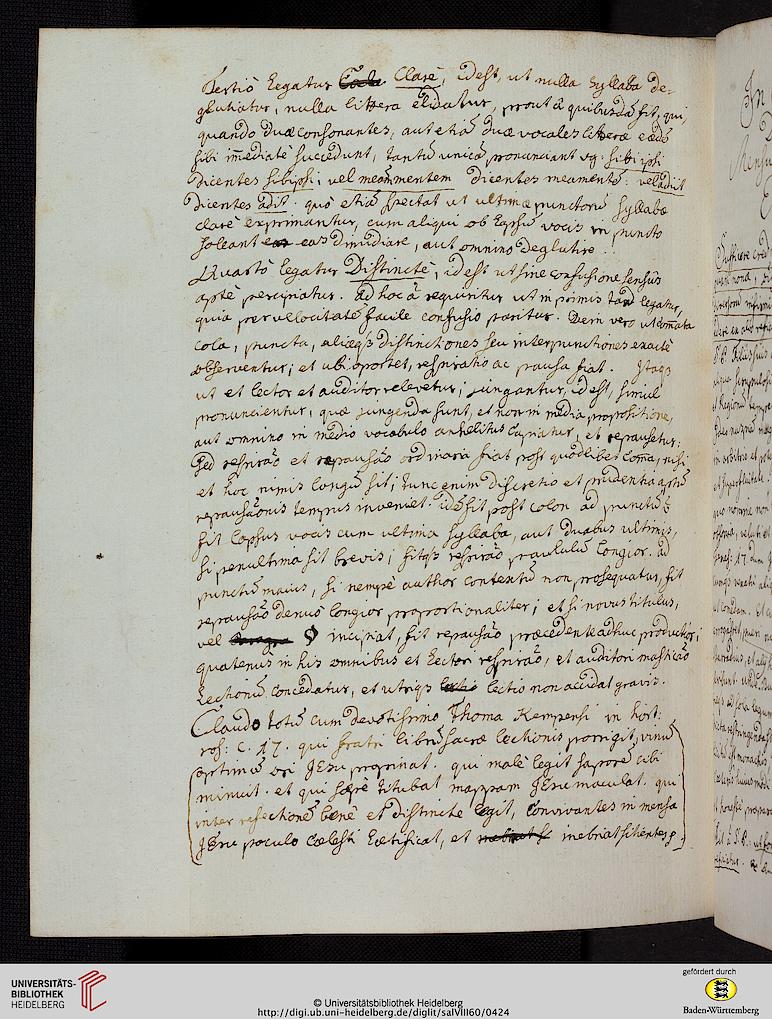 Tertiò Legatur Clarè, idest, ut nulla Syllaba de-
glutiatur, nulla littera elidatur, prout à quibusdā fit, qui,
quando duæ consonantes, aut etiā duæ vocales litteræ eædē
sibi im̄ediatè succedunt, tantū unicā pronunciant vg: sibi ipsi
dicentes sibipsi; vel meam mentem dicentes meamentē: vel adiit
dicentes adit. quò etiā spectat ut ultimæ punctorū syllabæ
clarè exprimantur, cum aliqui ob Lapsū vocis in puncto
soleant eas dimidiare, aut omnino deglutire.
Quartò legatur Distinctè, idest ut sine confusione sensus
aptè percipiatur. Ad hoc requiritur ut in primis tardè legatur,
quia per velocitatē facile confusio paritur. Dein vero ut comata
cola, puncta, aliæqs distinctiones seu interpunctiones exactè
observentur; et ubi oportet, respiratio ac pausa fiat. Itaqs
ut et lector et auditor relevetur; jungantur, idest, simul
pronuncientur, quæ jungenda sunt, et non in media propositione,
aut omnino in medio vocabulo anhelitus capiatur, et repausetur.
Sed respirāo et repausāo ordinaria fiat post quodlibet Coma, nisi
et hoc nimis longū sit; tunc enim discretio et prudentia
repausāonis tempus inveniet. idē fit post colon ad punctū
fit Lapsus vocis cum ultima syllaba, aut duabus ultimis,
si penultima sit brevis; sitqs respirāo paululū longior. ad
punctū maius, si nempè author contextū non prosequatur, fit
repausāo denuò longior proportionaliter; et si novus titulus,
vel § incipiat, fit repausāo præcedente adhuc productior,
quatenus in his omnibus et Lector respirāo, et auditori masticāo
Lectionū concedatur, et utriqs lectio non accidat gravis.
Claudo totū cum devotissimo Thoma Kempensi in hort:
ros: C. 17. qui fratri librū sacræ lectionis porrigit, vinū
optimū ori JEsu propinat. qui malè legit saporē cibi
minuit. et qui sæpè titubat mappam JEsu maculat. qui
inter refectionē benè et distincte legit, Convivantes in mensa
JEsu poculo Cœlesti Lætificat, et inebriat sitientes
UNIVERSITÄTS-
BIBLIOTHEK
HEIDELBERG
© Universitätsbibliothek Heidelberg
http://digi.ub.uni-heidelberg.de/diglit/salVIII60/0424
gefördert durch
Baden-Württemberg